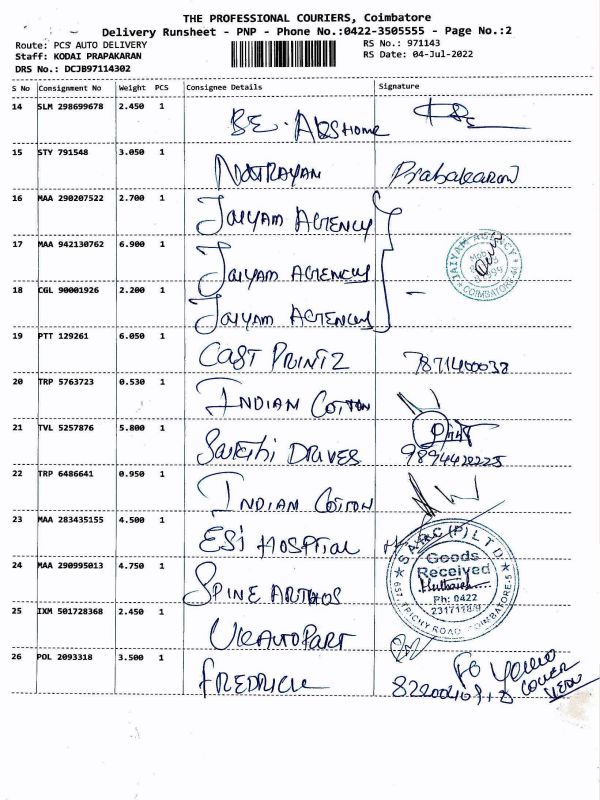 THE PROFESSIONAL COURIERS, Coimbatore
Delivery Runsheet - PNP - Phone No.:0422-3505555 - Page No.:2
Route: PCS AUTO DELIVERY RS No.: 971143
Staff: KODAI PRAPAKARAN RS Date: 04-Jul-2022
DRS No.: DCJB97114302
S No Consignment No Weight PCS Consignee Details Signature
14 SLM 298699678 2.450 1 BE. ABS Home
15 STY 791548 3.050 1 NATRAYAN Prabakaran
16 MAA 290207522 2.700 1 JAIYAM AGENCY
17 MAA 942130762 6.900 1 JAIYAM AGENCY JAIYAM AGENCY COIMBATORE
18 CGL 90001926 2.200 1 JAIYAM AGENCY
19 PTT 129261 6.050 1 CAST PRINTZ
20 TRP 5763723 0.530 1 INDIAN COTTON
21 TVL 5257876 5.800 1 SAKTHI DRIVES
22 TRP 6486641 0.950 1 INDIAN COTTON
23 MAA 283435155 4.500 1 ESI HOSPITAL
24 MAA 290995013 4.750 1 SPINE Goods Received Ph: 0422 TRICHY ROAD COIMBATORE
25 IXM 501728368 2.450 1 UKAUTOPART
26 POL 2093318 3.500 1 FREDRICK COVER